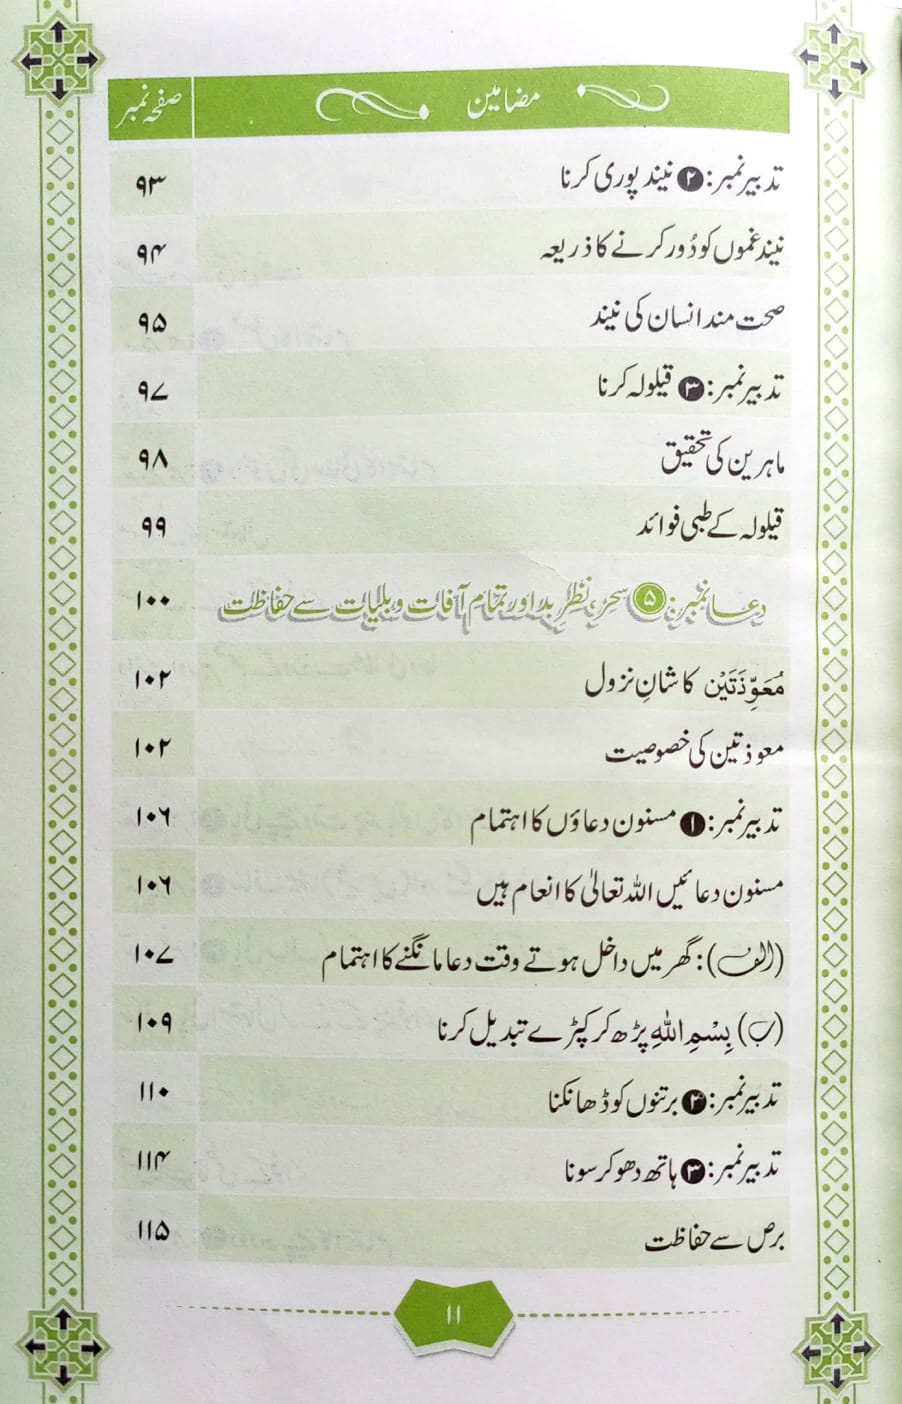 مضامین صفحہ نمبر
تدبیر نمبر: ۲ نیند پوری کرنا ۹۳
نیند غموں کو دُور کرنے کا ذریعہ ۹۴
صحت مند انسان کی نیند ۹۵
تدبیر نمبر: ۳ قیلولہ کرنا ۹۷
ماہرین کی تحقیق ۹۸
قیلولہ کے طبی فوائد ۹۹
دعا نمبر: ۵ سحر، نظرِ بد اور تمام آفات و بلیات سے حفاظت ۱۰۰
مُعَوِّذَتَیْن کا شانِ نزول ۱۰۲
معوذتین کی خصوصیت ۱۰۲
تدبیر نمبر: ۱ مسنون دعاؤں کا اہتمام ۱۰۶
مسنون دعائیں اللہ تعالیٰ کا انعام ہیں ۱۰۶
(الف): گھر میں داخل ہوتے وقت دعا مانگنے کا اہتمام ۱۰۷
(ب) بِسْمِ اللهِ پڑھ کر کپڑے تبدیل کرنا ۱۰۹
تدبیر نمبر: ۲ برتنوں کو ڈھانکنا ۱۱۰
تدبیر نمبر: ۳ ہاتھ دھو کر سونا ۱۱۴
برص سے حفاظت ۱۱۵
۱۱